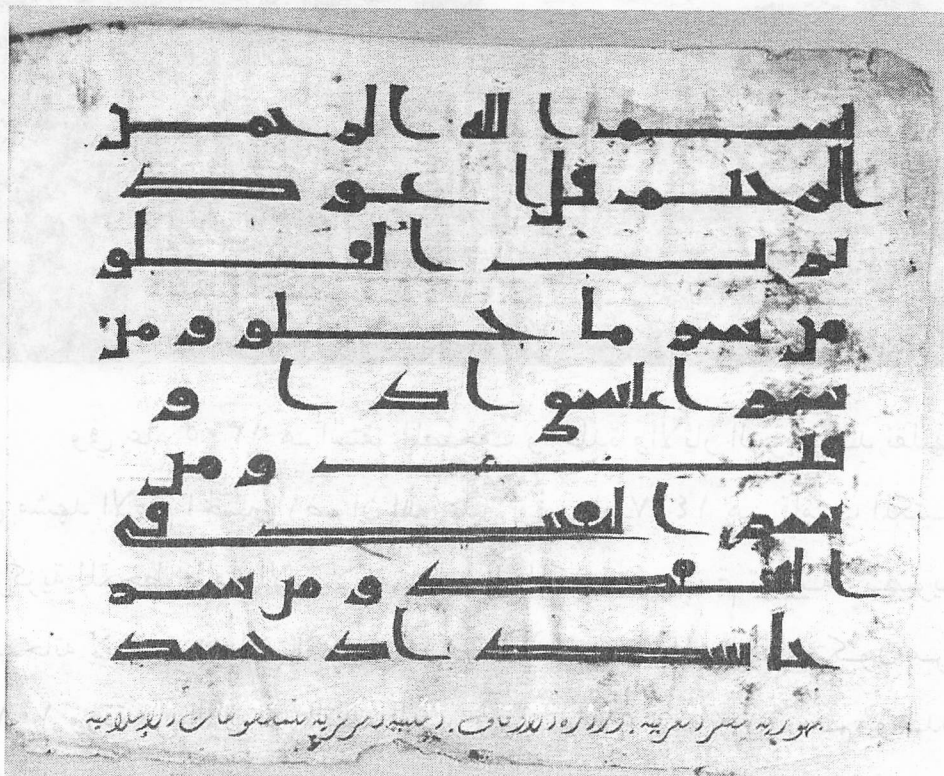 بسم الله الرحمن
الرحيم قل اعوذ
برب الفلق
من شر ما خلق ومن
شر غاسق اذا و
قب ومن
شر النفثت في
العقد ومن شر
حاسد اذ حسد
جمهورية مصر العربية . وزارة الاوقاف . المكتبة المركزية للمخطوطات الإسلامية